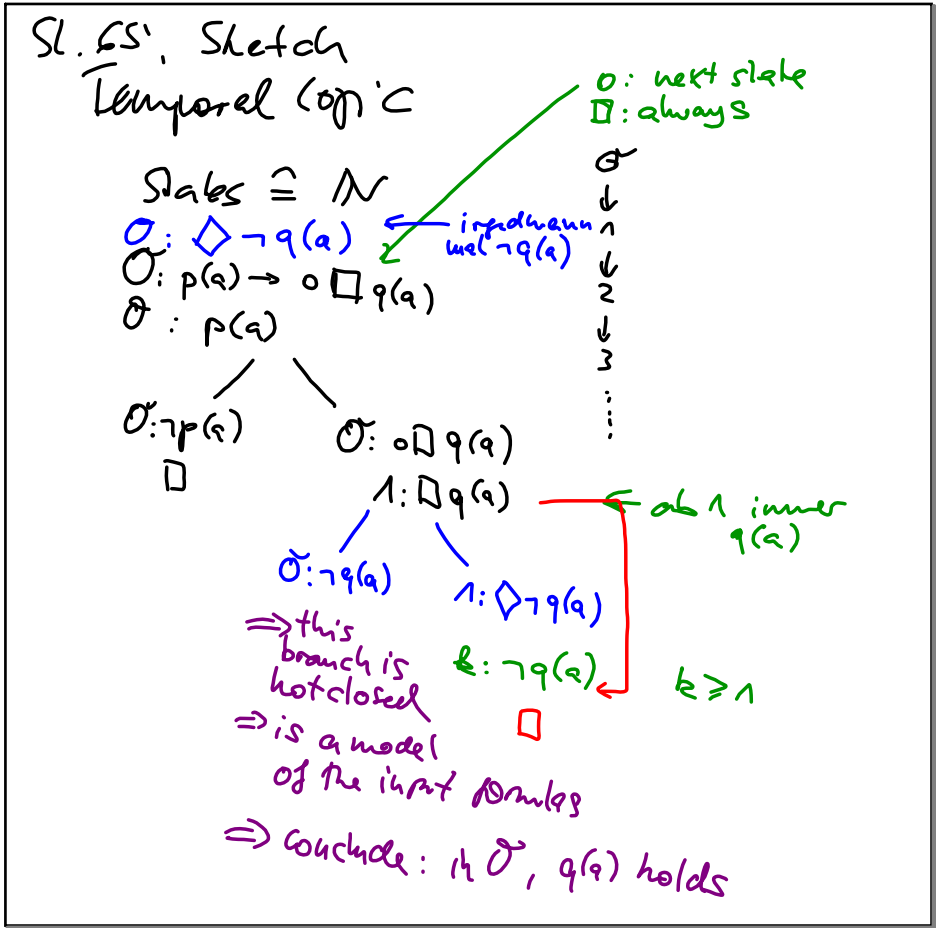 Sl. 65: Sketch
Temporal Logic
o: next state
□: always
States ≙ ℕ
0: ◇¬q(a)
irgendwann
mal ¬q(a)
0: p(a) → o□q(a)
0: p(a)
0
↓
1
↓
2
↓
3
⋮
0: ¬p(a)
□
0: o□q(a)
1: □q(a)
ab 1 immer
q(a)
0: ¬q(a)
1: ◇¬q(a)
⇒ this
branch is
not closed
k: ¬q(a)
k ≥ 1
□
⇒ is a model
of the input formulas
⇒ conclude: in 0, q(a) holds